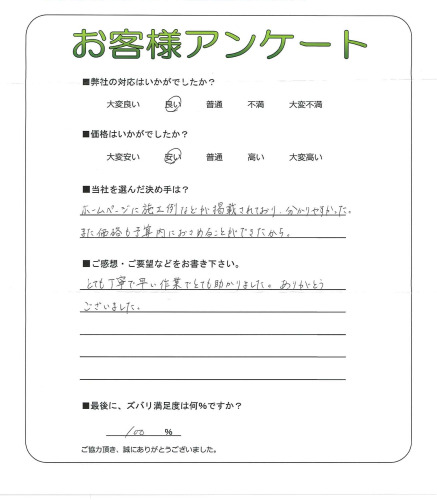 お客様アンケート
■弊社の対応はいかがでしたか？
大変良い　良い　普通　不満　大変不満
■価格はいかがでしたか？
大変安い　安い　普通　高い　大変高い
■当社を選んだ決め手は？
ホームページに施工例などが掲載されており、分かりやすかった。
また価格も予算内におさめることができたから。
■ご感想・ご要望などをお書き下さい。
とても丁寧で早い作業でとても助かりました。ありがとう
ございました。
■最後に、ズバリ満足度は何%ですか？
100 %
ご協力頂き、誠にありがとうございました。